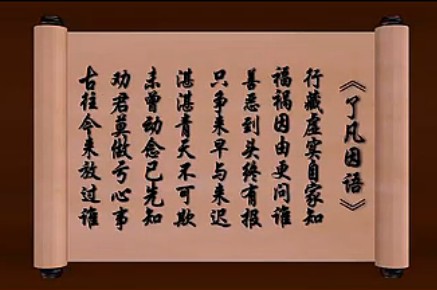 《了凡因语》
行藏虚实自家知
福祸因由更问谁
善恶到头终有报
只争来早与来迟
湛湛青天不可欺
未曾动念已先知
劝君莫做亏心事
古往今来放过谁